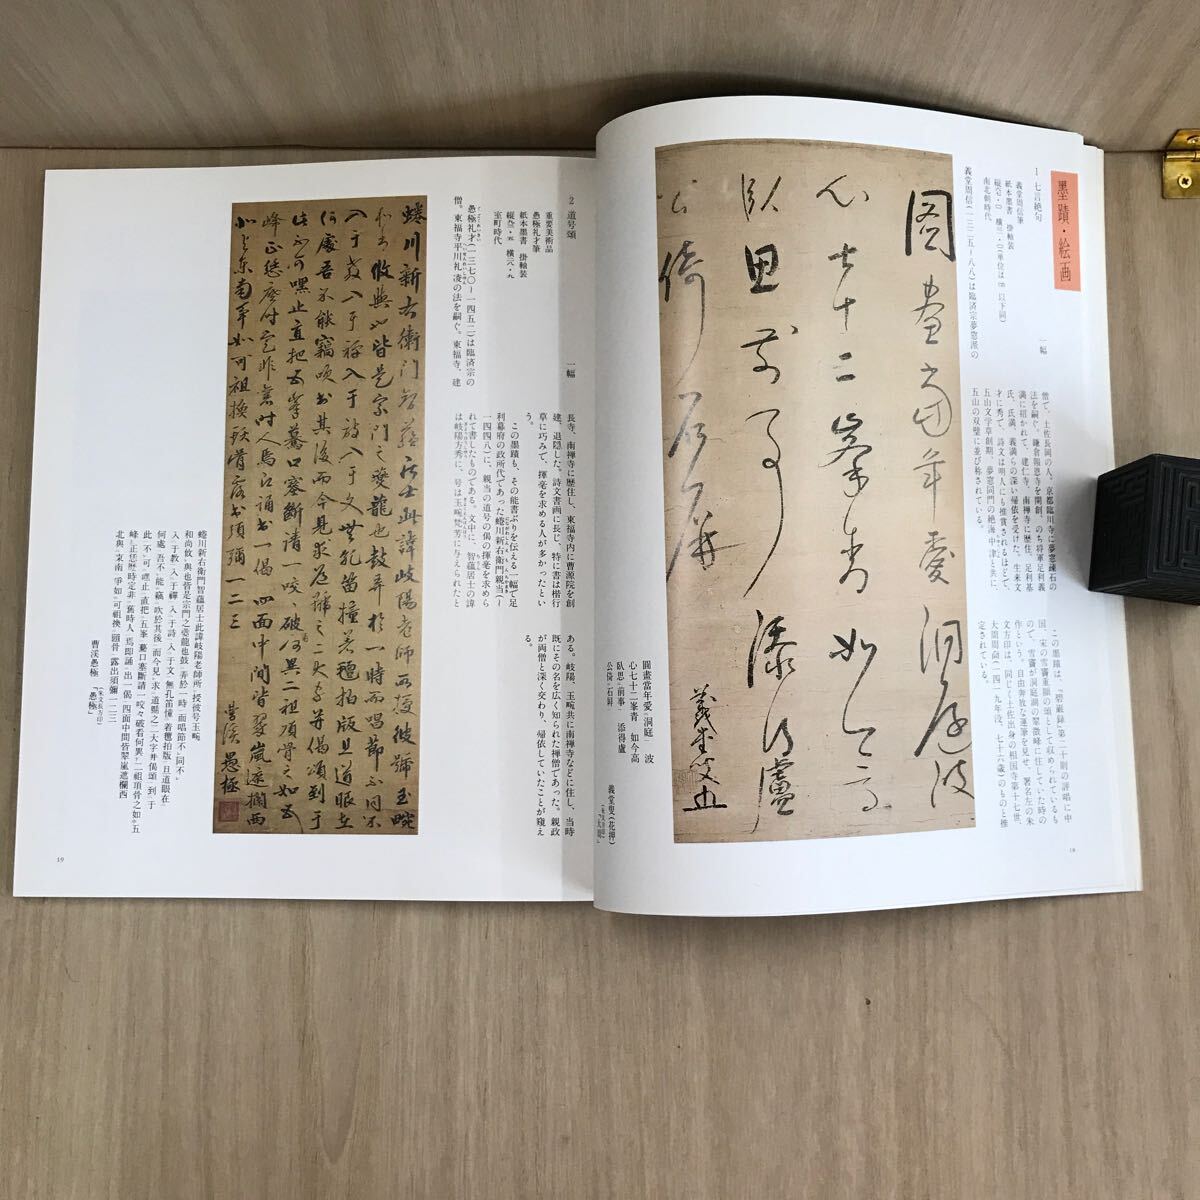 墨蹟・絵画
1 七言絶句
一幅
義堂周信筆
紙本墨書 掛軸装
南北朝時代
義堂周信(一三二五~八八)は臨済宗夢窓派の
僧で、土佐長岡の人。京都臨川寺に夢窓疎石の
法を嗣ぐ。鎌倉報恩寺を開創、のち将軍足利義
満に招かれて、建仁寺、南禅寺に歴住、足利基
氏、氏満、義満らの深い帰依を受けた。生来文
才に秀で、詩文は明人にも推賞されるほどで、
五山文学草創期、夢窓同門の絶海中津と共に、
五山の双璧に並び称されている。
この墨蹟は、『碧巌録』第二十則の評唱に中
国宋の雪竇重顕の頌として収められているも
ので、雪竇が洞庭湖の翠微峰に住していた時の
作という。自由奔放な運筆を見せ、署名左の朱
文方印は、同じく土佐出身の相国寺第十七世、
大周周奝(一四一九年没、七十六歳)のものと推
定されている。
圖畫當年愛洞庭 波
心七十二峯青 如今高
臥思前事 添得盧
公倚石屏
義堂叟(花押)
18
2 道号頌
一幅
重要美術品
愚極礼才筆
紙本墨書 掛軸装
室町時代
愚極礼才(一三七〇~一四五二)は臨済宗の
僧。東福寺平川礼浚の法を嗣ぐ。東福寺、建
長寺、南禅寺に歴住し、東福寺内に曹源院を創
建、退隠した。詩文書画に長じ、特に書は楷行
草に巧みで、揮毫を求める人が多かったとい
う。
この墨蹟も、その能書ぶりを伝える一幅で足
利幕府の政所代であった蜷川新右衛門親当(~
一四四八)に、親当の道号の偈の揮毫を求めら
れて書したものである。文中に、智蘊居士の諱
は岐陽方秀に、号は玉畹梵芳に与えられたと
ある。岐陽、玉畹共に南禅寺などに住し、当時
既にその名を広く知られた禅僧であった。親政
が両僧と深く交わり、帰依していたことが窺え
る。
蜷川新右衛門智蘊居士此諱岐陽老師所授彼号玉畹
和尚攸與也皆是宗門之二龍也鼓弄於一時而唱節不同
入于教入于禪入于詩入于文無孔笛撞着氈拍版且道眼在
何處吾不能竊吹於其後而今見求道號之二大字并偈頌到于
此不可嘿止直把五峯驀口塞斷請一咬々破看何異二祖項骨之如五
峰正恁麼時定非舊時人焉即誦出一偈四面中間皆翠嵐遮欄西
北與東南爭如可祖換頭骨露出須彌一二三
曹渓愚極 「愚極」
(朱文長方印)
19